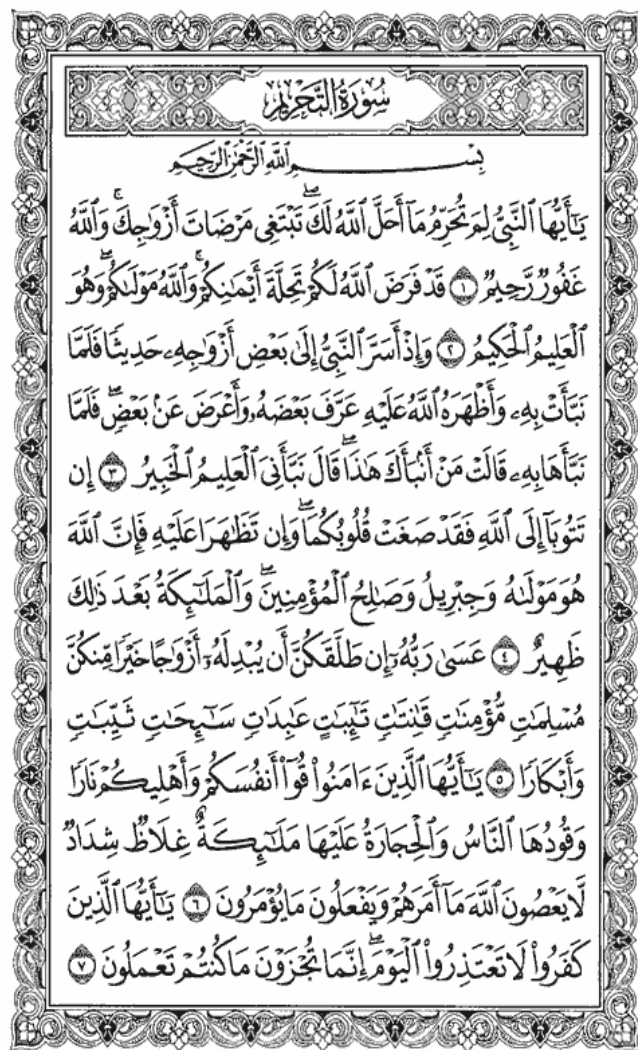 سُورَةُ التَّحْرِيمِ
بِسْمِ ٱللَّهِ ٱلرَّحْمَٰنِ ٱلرَّحِيمِ
يَٰٓأَيُّهَا ٱلنَّبِيُّ لِمَ تُحَرِّمُ مَآ أَحَلَّ ٱللَّهُ لَكَۖ تَبْتَغِى مَرْضَاتَ أَزْوَٰجِكَۚ وَٱللَّهُ
غَفُورٌ رَّحِيمٌ ١ قَدْ فَرَضَ ٱللَّهُ لَكُمْ تَحِلَّةَ أَيْمَٰنِكُمْۚ وَٱللَّهُ مَوْلَىٰكُمْۖ وَهُوَ
ٱلْعَلِيمُ ٱلْحَكِيمُ ٢ وَإِذْ أَسَرَّ ٱلنَّبِيُّ إِلَىٰ بَعْضِ أَزْوَٰجِهِۦ حَدِيثًا فَلَمَّا
نَبَّأَتْ بِهِۦ وَأَظْهَرَهُ ٱللَّهُ عَلَيْهِ عَرَّفَ بَعْضَهُۥ وَأَعْرَضَ عَنۢ بَعْضٍۖ فَلَمَّا
نَبَّأَهَا بِهِۦ قَالَتْ مَنْ أَنۢبَأَكَ هَٰذَاۖ قَالَ نَبَّأَنِىَ ٱلْعَلِيمُ ٱلْخَبِيرُ ٣ إِن
تَتُوبَآ إِلَى ٱللَّهِ فَقَدْ صَغَتْ قُلُوبُكُمَاۖ وَإِن تَظَٰهَرَا عَلَيْهِ فَإِنَّ ٱللَّهَ
هُوَ مَوْلَىٰهُ وَجِبْرِيلُ وَصَٰلِحُ ٱلْمُؤْمِنِينَۖ وَٱلْمَلَٰٓئِكَةُ بَعْدَ ذَٰلِكَ
ظَهِيرٌ ٤ عَسَىٰ رَبُّهُۥٓ إِن طَلَّقَكُنَّ أَن يُبْدِلَهُۥٓ أَزْوَٰجًا خَيْرًا مِّنكُنَّ
مُسْلِمَٰتٍ مُّؤْمِنَٰتٍ قَٰنِتَٰتٍ تَٰٓئِبَٰتٍ عَٰبِدَٰتٍ سَٰٓئِحَٰتٍ ثَيِّبَٰتٍ
وَأَبْكَارًا ٥ يَٰٓأَيُّهَا ٱلَّذِينَ ءَامَنُوا۟ قُوٓا۟ أَنفُسَكُمْ وَأَهْلِيكُمْ نَارًا
وَقُودُهَا ٱلنَّاسُ وَٱلْحِجَارَةُ عَلَيْهَا مَلَٰٓئِكَةٌ غِلَاظٌ شِدَادٌ
لَّا يَعْصُونَ ٱللَّهَ مَآ أَمَرَهُمْ وَيَفْعَلُونَ مَا يُؤْمَرُونَ ٦ يَٰٓأَيُّهَا ٱلَّذِينَ
كَفَرُوا۟ لَا تَعْتَذِرُوا۟ ٱلْيَوْمَۖ إِنَّمَا تُجْزَوْنَ مَا كُنتُمْ تَعْمَلُونَ ٧